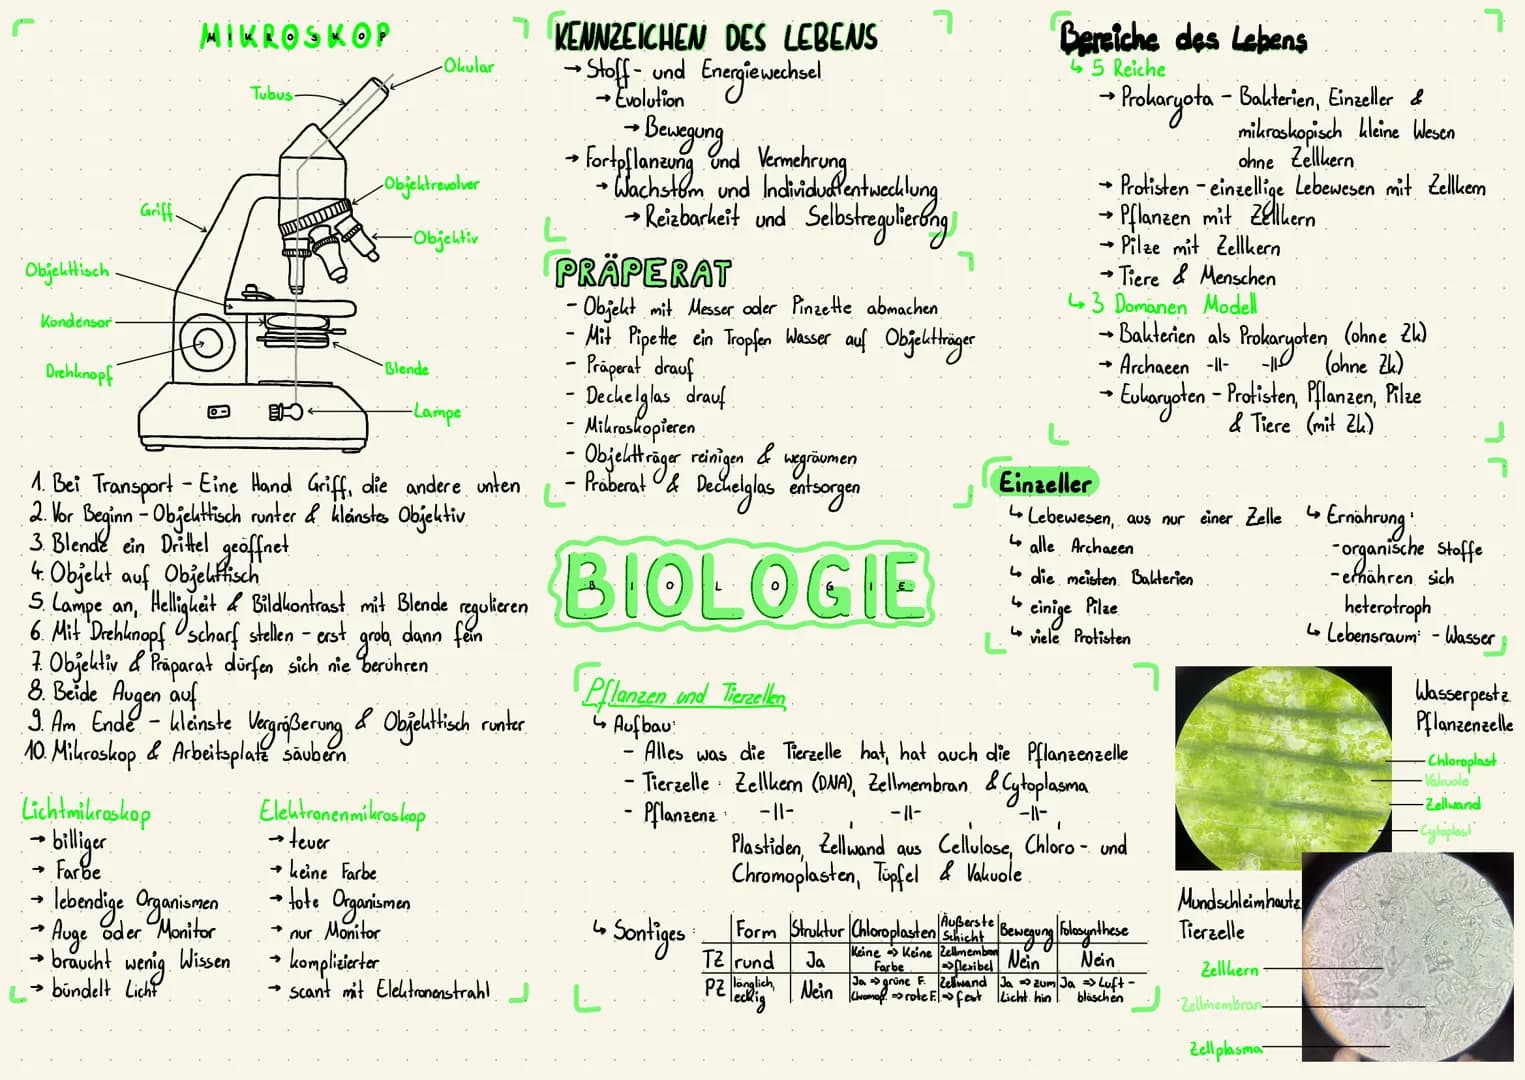 MIKROSKOP
Okular
Tubus
Objektrevolver
Griff
Objektiv
Objekttisch
Kondensor
Drehknopf
Blende
Lampe
1. Bei Transport - Eine Hand Griff, die andere unten
2. Vor Beginn - Objekttisch runter & kleinstes Objektiv
3. Blende ein Drittel geöffnet
4. Objekt auf Objekttisch
5. Lampe an, Helligkeit & Bildkontrast mit Blende regulieren
6. Mit Drehknopf scharf stellen - erst grob, dann fein
7. Objektiv & Präparat dürfen sich nie berühren
8. Beide Augen auf
9. Am Ende - kleinste Vergrößerung & Objekttisch runter
10. Mikroskop & Arbeitsplatz säubern
Lichtmikroskop
→ billiger
→ Farbe
→ lebendige Organismen
→ Auge oder Monitor
→ braucht wenig Wissen
→ bündelt Licht
Elektronenmikroskop
→ teuer
→ keine Farbe
→ tote Organismen
→ nur Monitor
→ komplizierter
→ scant mit Elektronenstrahl
KENNZEICHEN DES LEBENS
→ Stoff- und Energiewechsel
→ Evolution
→ Bewegung
→ Fortpflanzung und Vermehrung
→ Wachstum und Individualentwecklung
→ Reizbarkeit und Selbstregulierung
PRÄPERAT
- Objekt mit Messer oder Pinzette abmachen
- Mit Pipette ein Tropfen Wasser auf Objektträger
- Präperat drauf
- Deckelglas drauf
- Mikroskopieren
- Objektträger reinigen & wegräumen
- Präberat & Deckelglas entsorgen
BIOLOGIE
Bereiche des Lebens
↳ 5 Reiche
→ Prokaryota - Bakterien, Einzeller &
mikroskopisch kleine Wesen
ohne Zellkern
→ Protisten - einzellige Lebewesen mit Zellkern
→ Pflanzen mit Zellkern
→ Pilze mit Zellkern
→ Tiere & Menschen
↳ 3 Domänen Modell
→ Bakterien als Prokaryoten (ohne Zk)
→ Archaeen -11- -11- (ohne Zk.)
→ Eukaryoten - Protisten, Pflanzen, Pilze
& Tiere (mit Zk.)
Einzeller
↳ Lebewesen, aus nur einer Zelle
↳ alle Archaeen
↳ die meisten Bakterien
↳ einige Pilze
↳ viele Protisten
↳ Ernährung:
- organische Stoffe
- ernähren sich
heterotroph
↳ Lebensraum: - Wasser
Pflanzen und Tierzellen
↳ Aufbau:
- Alles was die Tierzelle hat, hat auch die Pflanzenzelle
- Tierzelle: Zellkern (DNA), Zellmembran & Cytoplasma
- Pflanzenz.: -11-, -11-, -11-,
Plastiden, Zellwand aus Cellulose, Chloro- und
Chromoplasten, Tüpfel & Vakuole
↳ Sontiges:
Form Struktur Chloroplasten Äußerste Schicht Bewegung Fotosynthese
TZ rund Ja Keine ⇒ Keine Farbe Zellmembran ⇒ flexibel Nein Nein
PZ länglich, eckig Nein Ja ⇒ grüne F. Chromop. ⇒ rote F. Zellwand ⇒ fest Ja ⇒ zum Licht hin Ja ⇒ Luft-bläschen
Wasserpestz
Pflanzenzelle
Chloroplast
Vakuole
Zellwand
Cytoplast
Mundschleimhautz.
Tierzelle
Zellkern
Zellmembran
Zellplasma